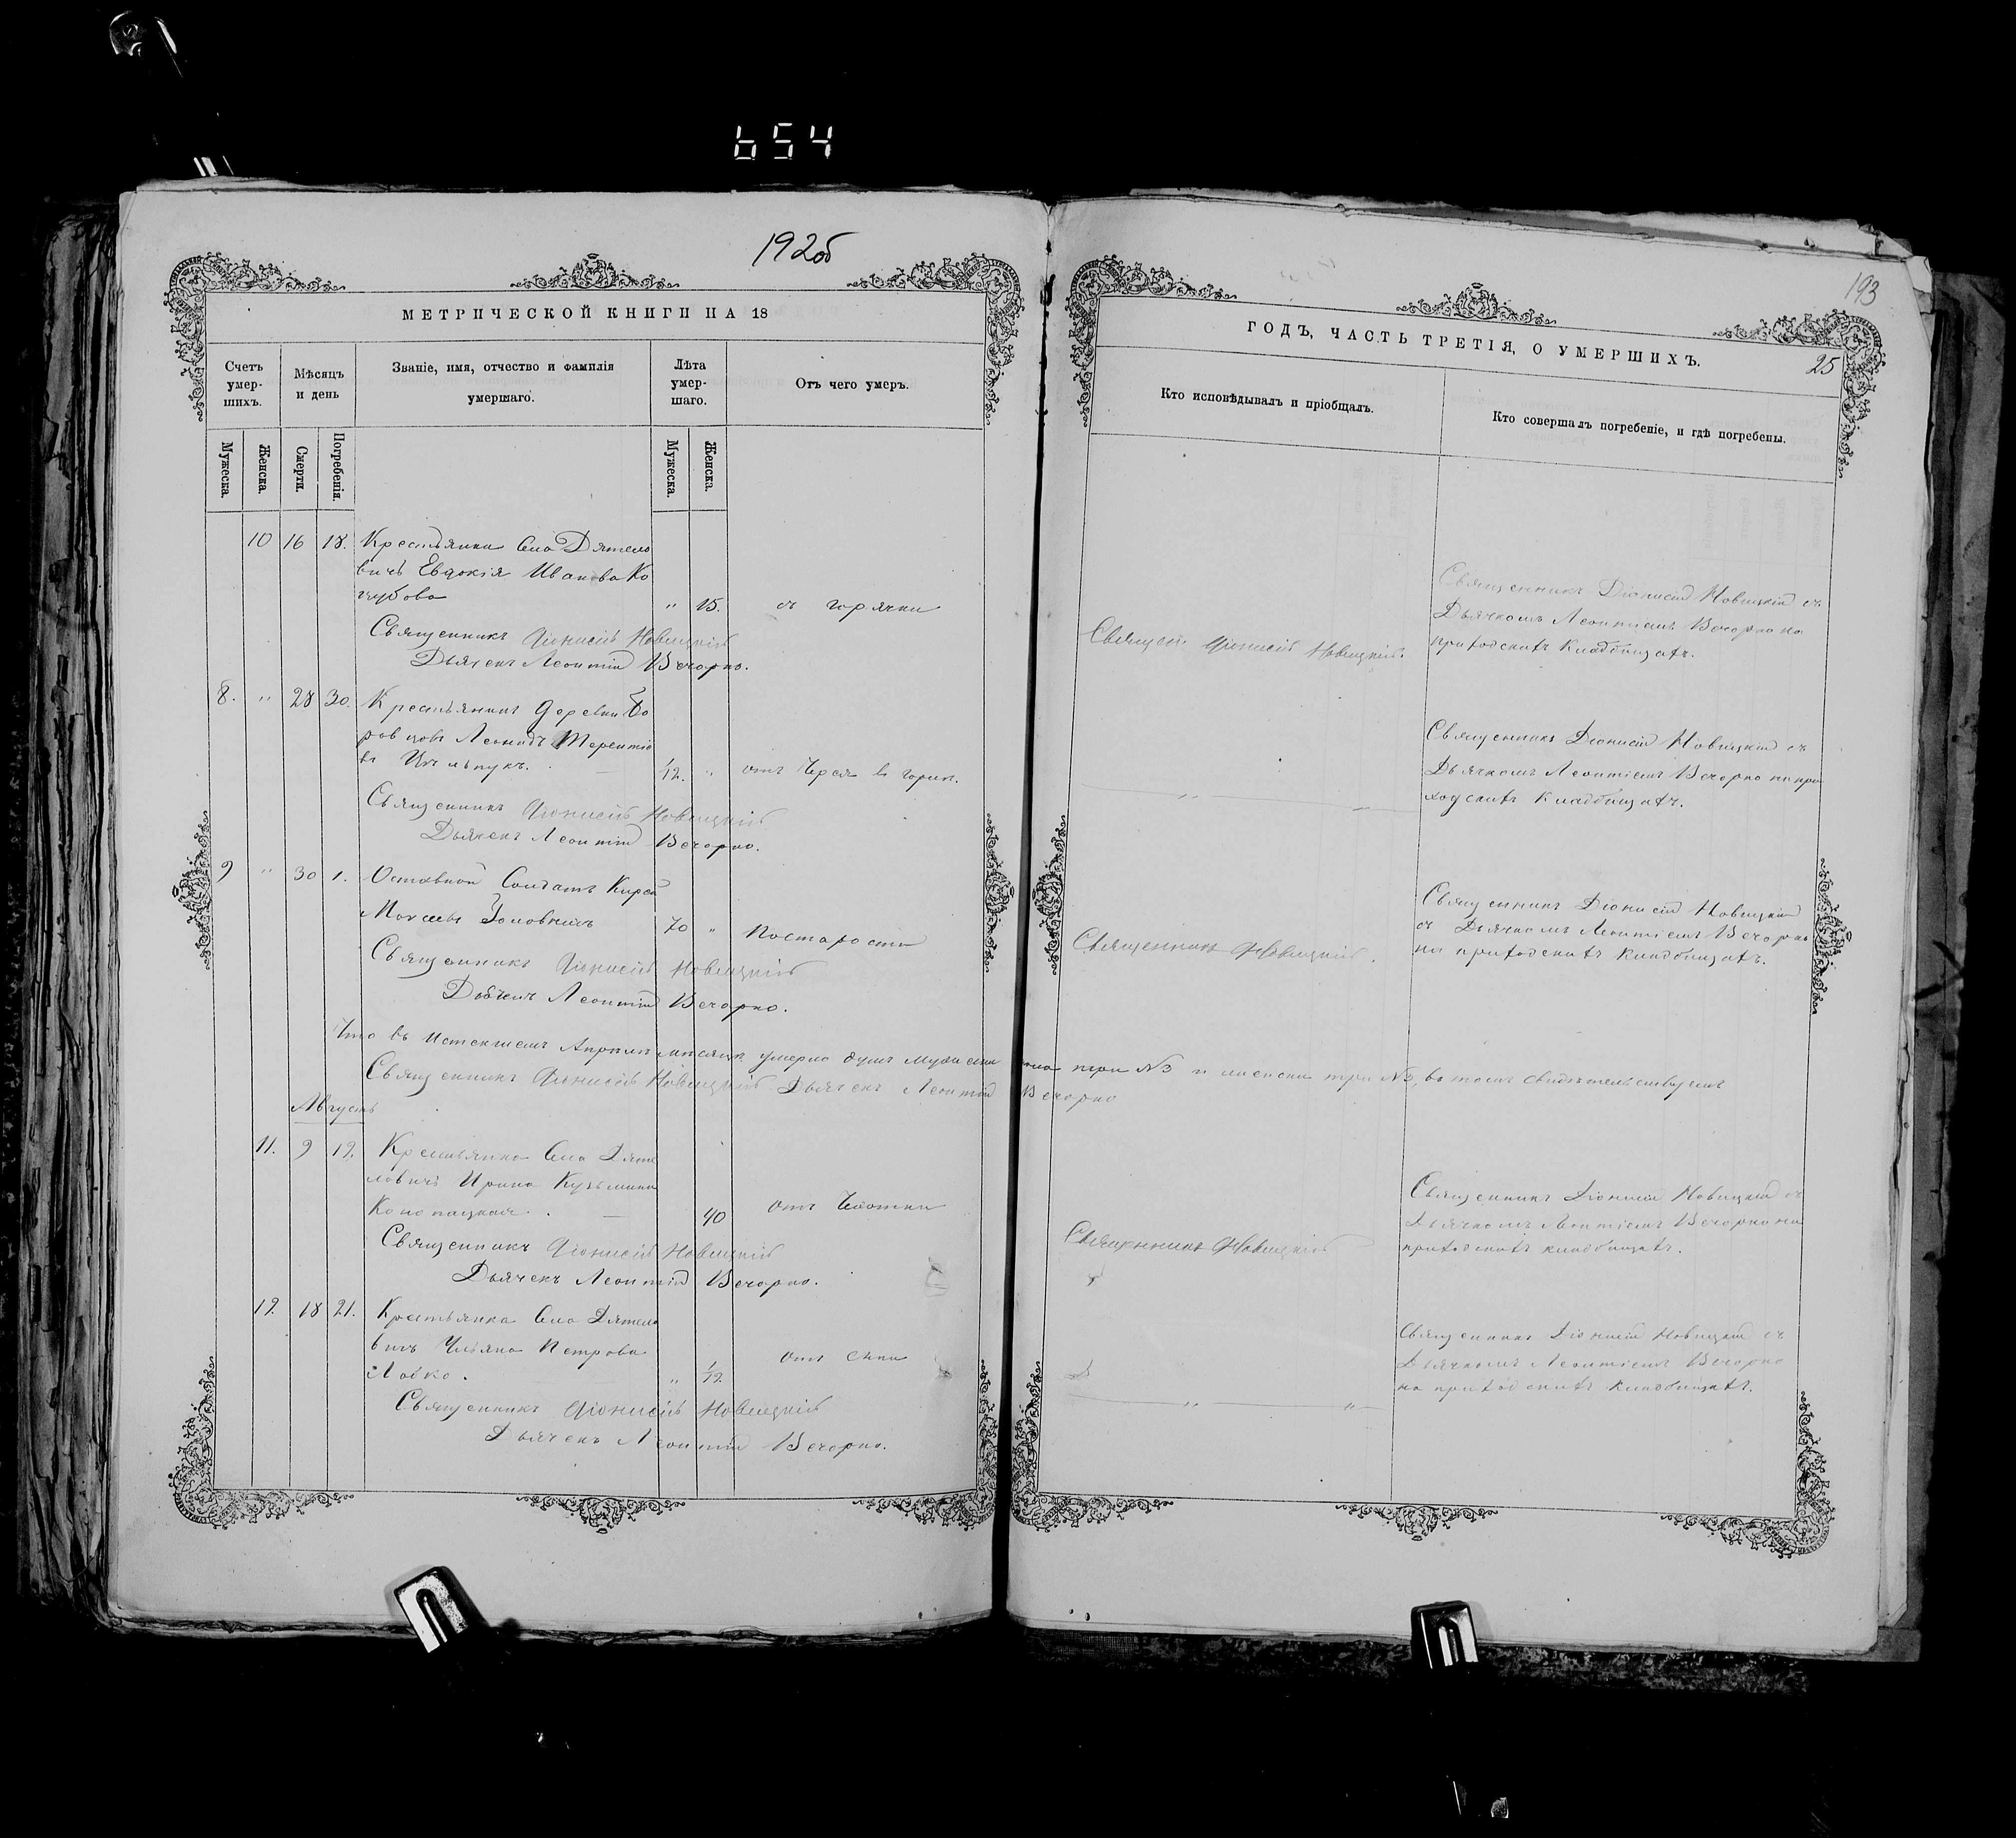 654
192об
МЕТРИЧЕСКОЙ КНИГИ НА 18
Счетъ умер-шихъ.
Мѣсяцъ и день
Званіе, имя, отчество и фамилія умершаго.
Лѣта умер-шаго.
Отъ чего умеръ.
Мужеска.
Женска.
Смерти.
Погребенія.
Мужеска.
Женска.
10 16 18. Крестьянка Села Дятело
вичъ Евдокія Иванова Ко
" 15. съ горячки
Священникъ Діонисій Новицкій
Дьячекъ Леонтій Вечорко.
8. " 28 30. Крестьянинъ деревни Бо
Леонидъ Терентіе
въ
1/12. " отъ
Священникъ Діонисій Новицкій
Дьячекъ Леонтій Вечорко.
9 " 30 1. Солдатъ
70 "
Священникъ Діонисій Новицкій
Дьячекъ Леонтій Вечорко.
Что въ истекшемъ мѣсяцѣ умерло душъ мужеска пола три №3 и женска три №3, въ томъ свидѣтельствуемъ
Священникъ Діонисій Новицкій Дьячекъ Леонтій Вечорко
Августъ
11. 9 12. Крестьянка Села Дяте
ловичъ Ирина Кузьмина
Конопацкая.
40 отъ
Священникъ Діонисій Новицкій
Дьячекъ Леонтій Вечорко.
12 18 21. Крестьянка Села Дятело
вичъ Петрова
" 1/12. отъ
Священникъ Діонисій Новицкій
Дьячекъ Леонтій Вечорко.
193
ГОДЪ, ЧАСТЬ ТРЕТІЯ, О УМЕРШИХЪ.
25
Кто исповѣдывалъ и пріобщалъ.
Кто совершалъ погребеніе, и гдѣ погребены.
Священ. Діонисій Новицкій.
Священникъ Діонисій Новицкій съ
Дьячкомъ Леонтіемъ Вечорко на
приходскомъ Кладбищѣ.
" "
Священникъ Діонисій Новицкій съ
Дьячкомъ Леонтіемъ Вечорко на при
ходскомъ Кладбищѣ.
Священникъ Новицкій.
Священникъ Діонисій Новицкій
съ Дьячкомъ Леонтіемъ Вечорко
на приходскомъ Кладбищѣ.
Священникъ Новицкій
Священникъ Діонисій Новицкій съ
Дьячкомъ Леонтіемъ Вечорко на
приходскомъ кладбищѣ.
" "
Священникъ Діонисій Новицкій съ
Дьячкомъ Леонтіемъ Вечорко
на приходскомъ кладбищѣ.